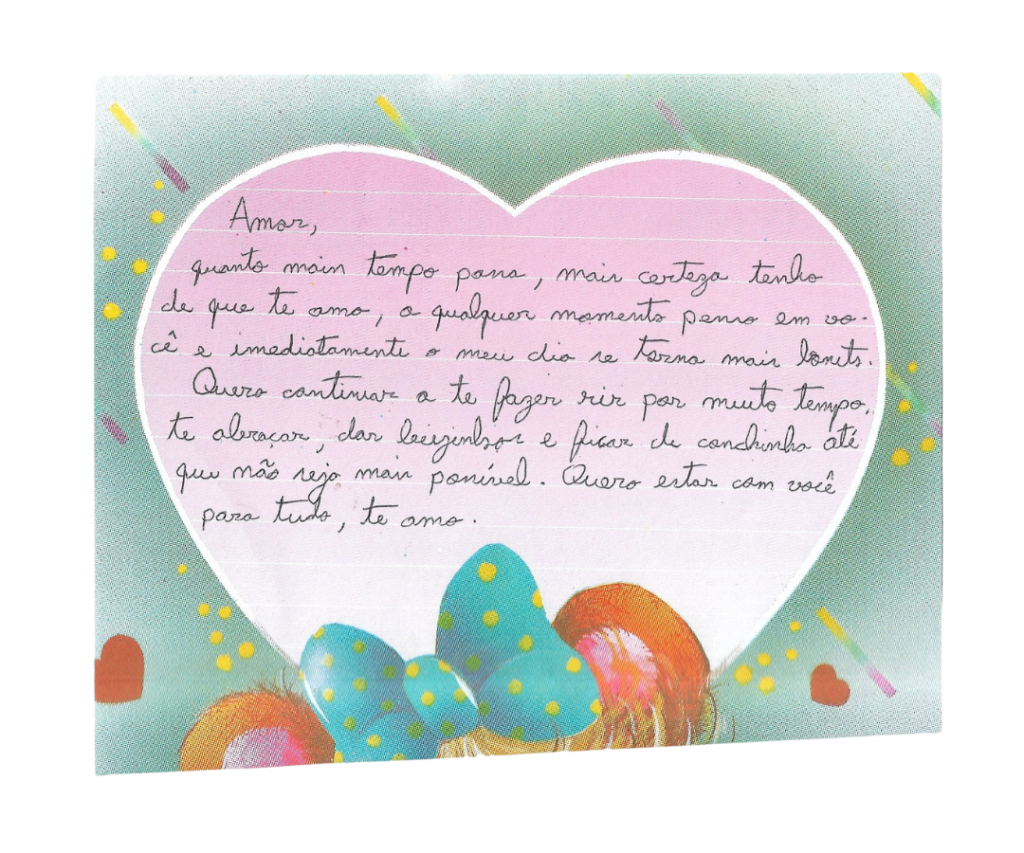 Amor,
quanto mais tempo passa, mais certeza tenho
de que te amo, a qualquer momento penso em vo-
cê e imediatamente o meu dia se torna mais bonito.
Quero continuar a te fazer rir por muito tempo,
te abraçar, dar beijinhos e ficar de conchinha até
que não seja mais possível. Quero estar com você
para tudo, te amo.